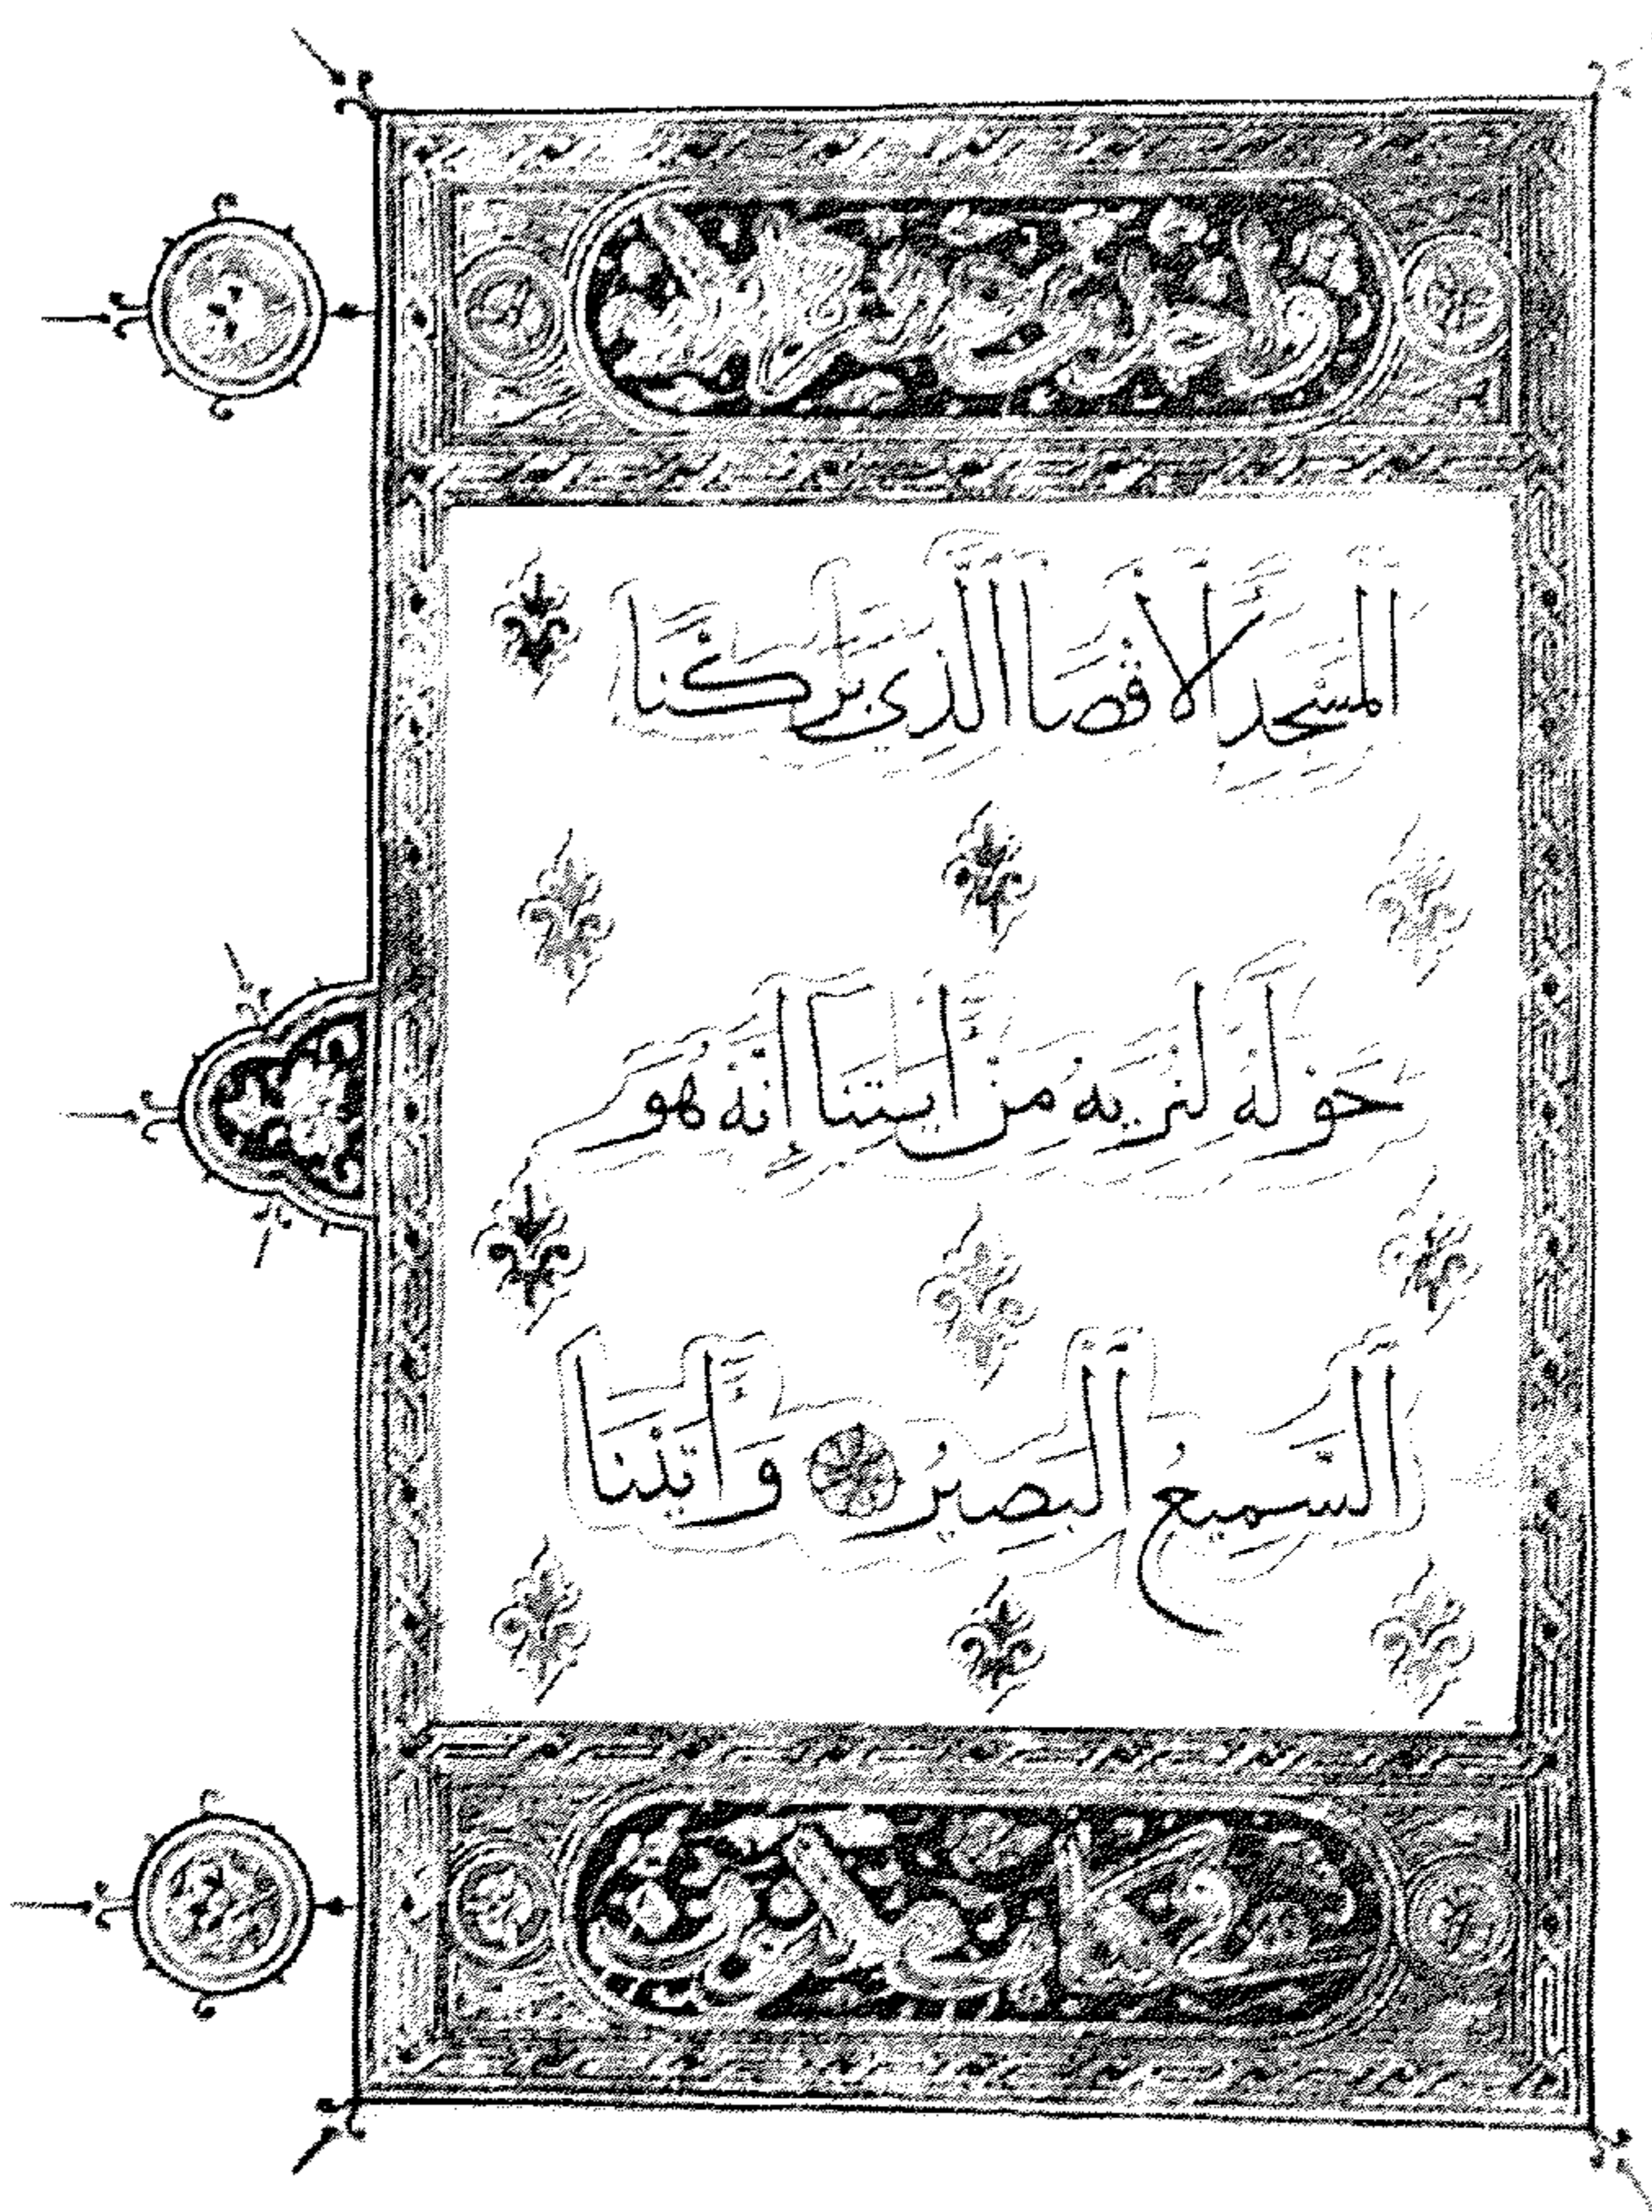 الْمَسْجِدِ الْأَقْصَا الَّذِي بَٰرَكْنَا
حَوْلَهُ لِنُرِيَهُ مِنْ اٰيَٰتِنَا إِنَّهُ هُوَ
السَّمِيعُ الْبَصِيرُ وَاٰتَيْنَا